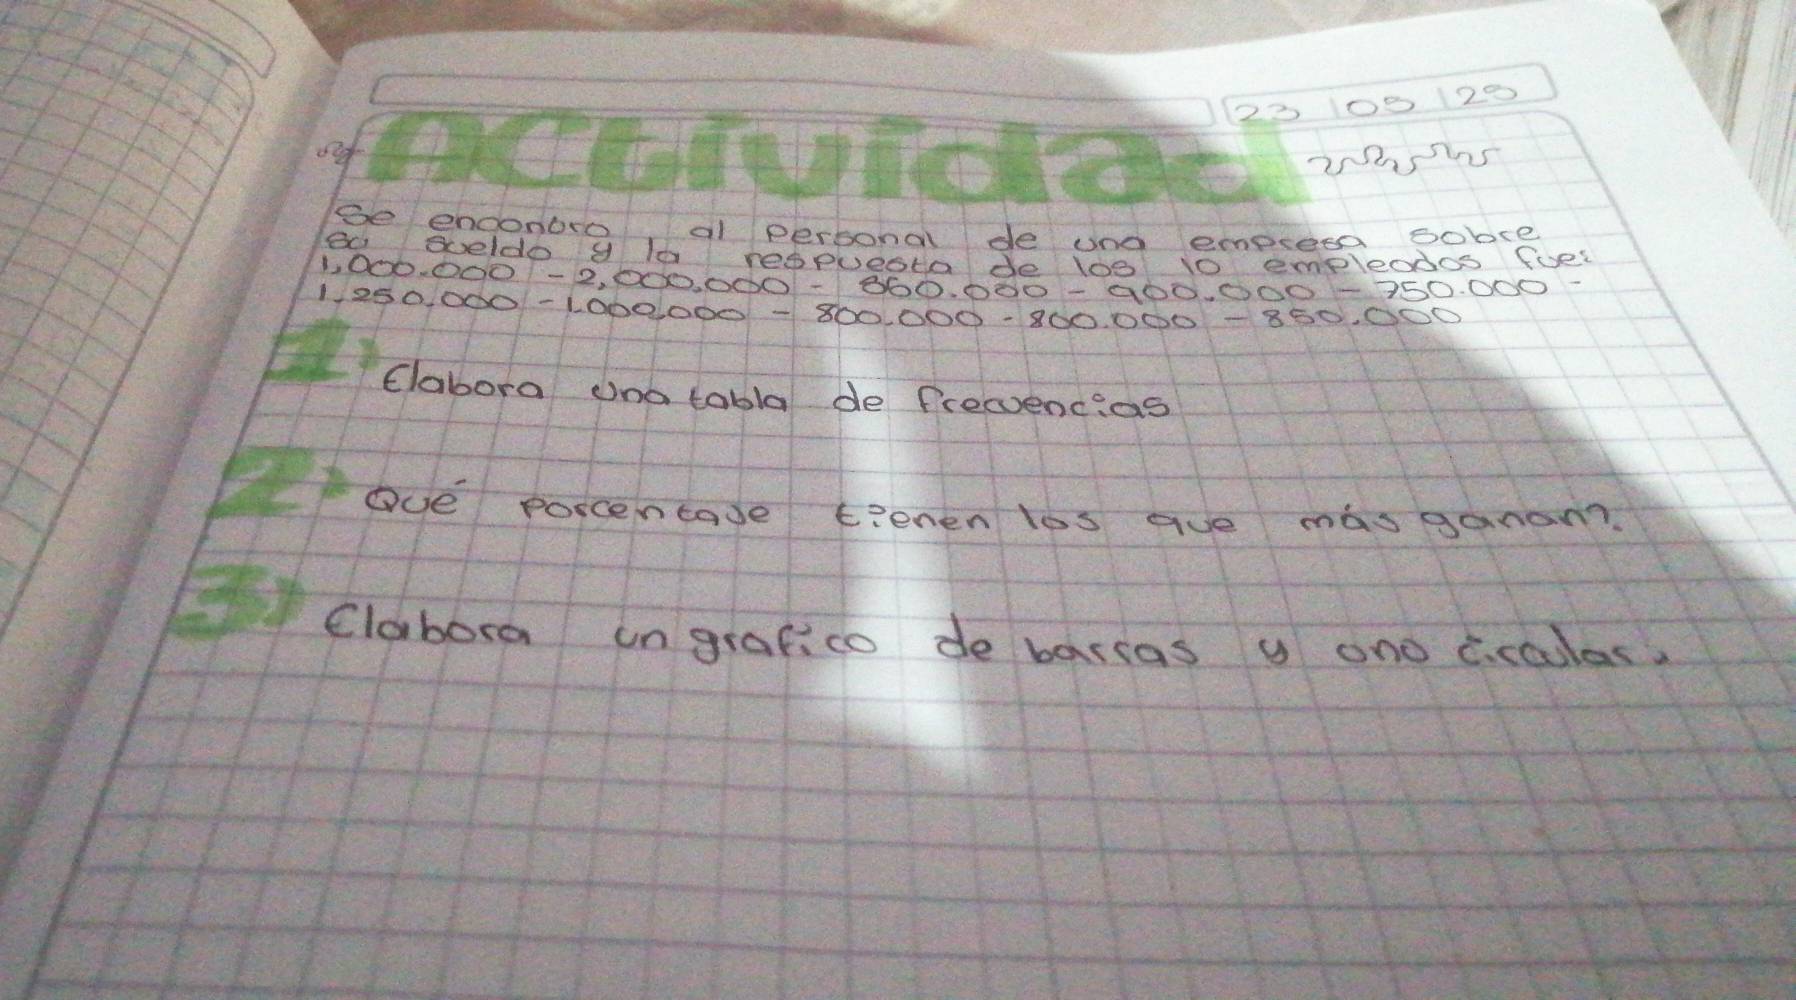 23 / 05 / 25
Actividad
Se encontro al personal de una empresa sobre
su sueldo y la respuesta de los 10 empleados fue:
1,000.000 - 2,000.000 - 860.000 - 900.000 - 750.000 -
1.250.000 - 1.000.000 - 800.000 - 800.000 - 850.000
1) Elabora una tabla de frecuencias
2) Qué porcentaje tienen los que más ganan?
3) Elabora un grafico de barras y uno circular.